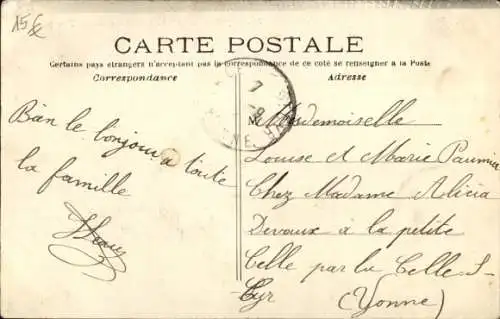 15€
CARTE POSTALE
Certains pays étrangers n'acceptant pas la correspondance de ce coté se renseigner à la Poste
Correspondance
Adresse
Bien le bonjour a toute
la famille
Mesdemoiselle
Louise et Marie Paumier
Chez Madame Alicia
Devaux à la petite
Celle par la Celle S-
Cyr (Yonne)